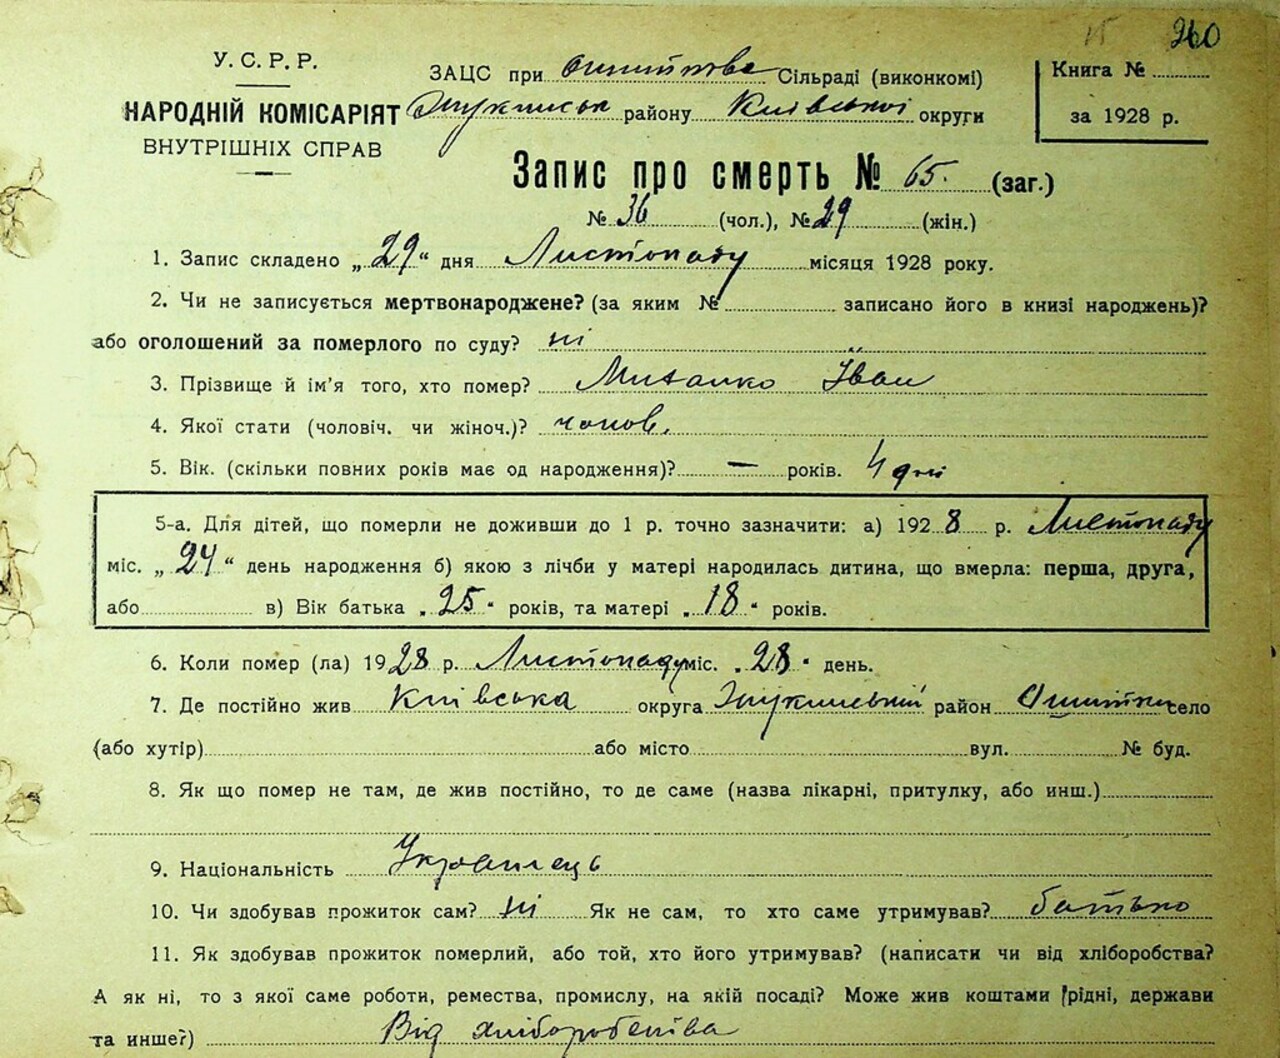 260
У. С. Р. Р.
НАРОДНІЙ КОМІСАРІЯТ
ВНУТРІШНІХ СПРАВ
ЗАЦС при Сільраді (виконкомі)
району Київської округи
Книга №
за 1928 р.
Запис про смерть № 65. (заг.)
№ 36 (чол.), № 29 (жін.)
1. Запис складено „29“ дня Листопаду місяця 1928 року.
2. Чи не записується мертвонароджене? (за яким № записано його в книзі народжень)?
або оголошений за померлого по суду? ні
3. Прізвище й ім'я того, хто помер? Іван
4. Якої стати (чоловіч. чи жіноч.)? чолов.
5. Вік. (скільки повних років має од народження)? — років. 4 дні
5-а. Для дітей, що померли не доживши до 1 р. точно зазначити: а) 1928 р. Листопаду
міс. „24“ день народження б) якою з лічби у матері народилась дитина, що вмерла: перша, друга,
або в) Вік батька „25“ років, та матері „18“ років.
6. Коли помер (ла) 1928 р. Листопаду міс. „28“ день.
7. Де постійно жив Київська округа район село
(або хутір) або місто вул. № буд.
8. Як що помер не там, де жив постійно, то де саме (назва лікарні, притулку, або инш.)
9. Національність Українець
10. Чи здобував прожиток сам? ні Як не сам, то хто саме утримував? батько
11. Як здобував прожиток померлий, або той, хто його утримував? (написати чи від хліборобства?
А як ні, то з якої саме роботи, ремества, промислу, на якій посаді? Може жив коштами рідні, держави
та инше?) Від хліборобства